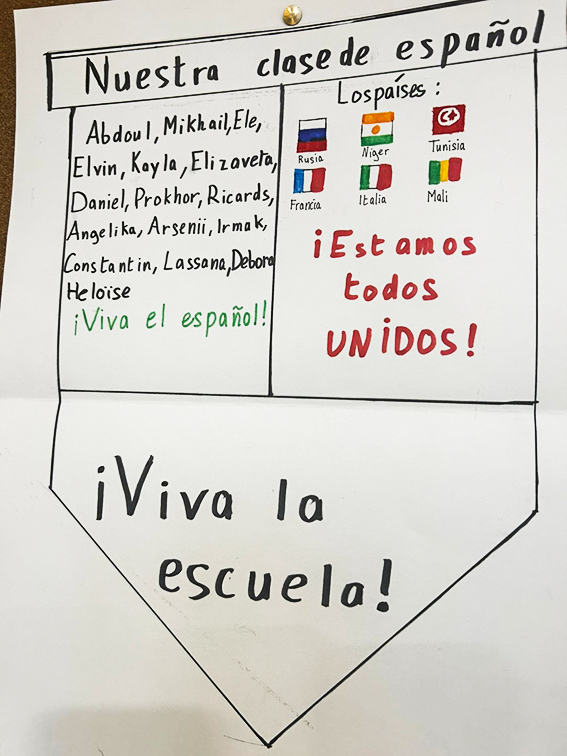 Nuestra clase de español
Abdoul, Mikhail, Ele,
Elvin, Kayla, Elizaveta,
Daniel, Prokhor, Ricards,
Angelika, Arsenii, Irmak,
Constantin, Lassana, Debora
Heloïse
¡Viva el español!
Los países :
Rusia Niger Tunisia
Francia Italia Mali
¡Estamos
todos
UNiDOS!
¡Viva la
escuela!